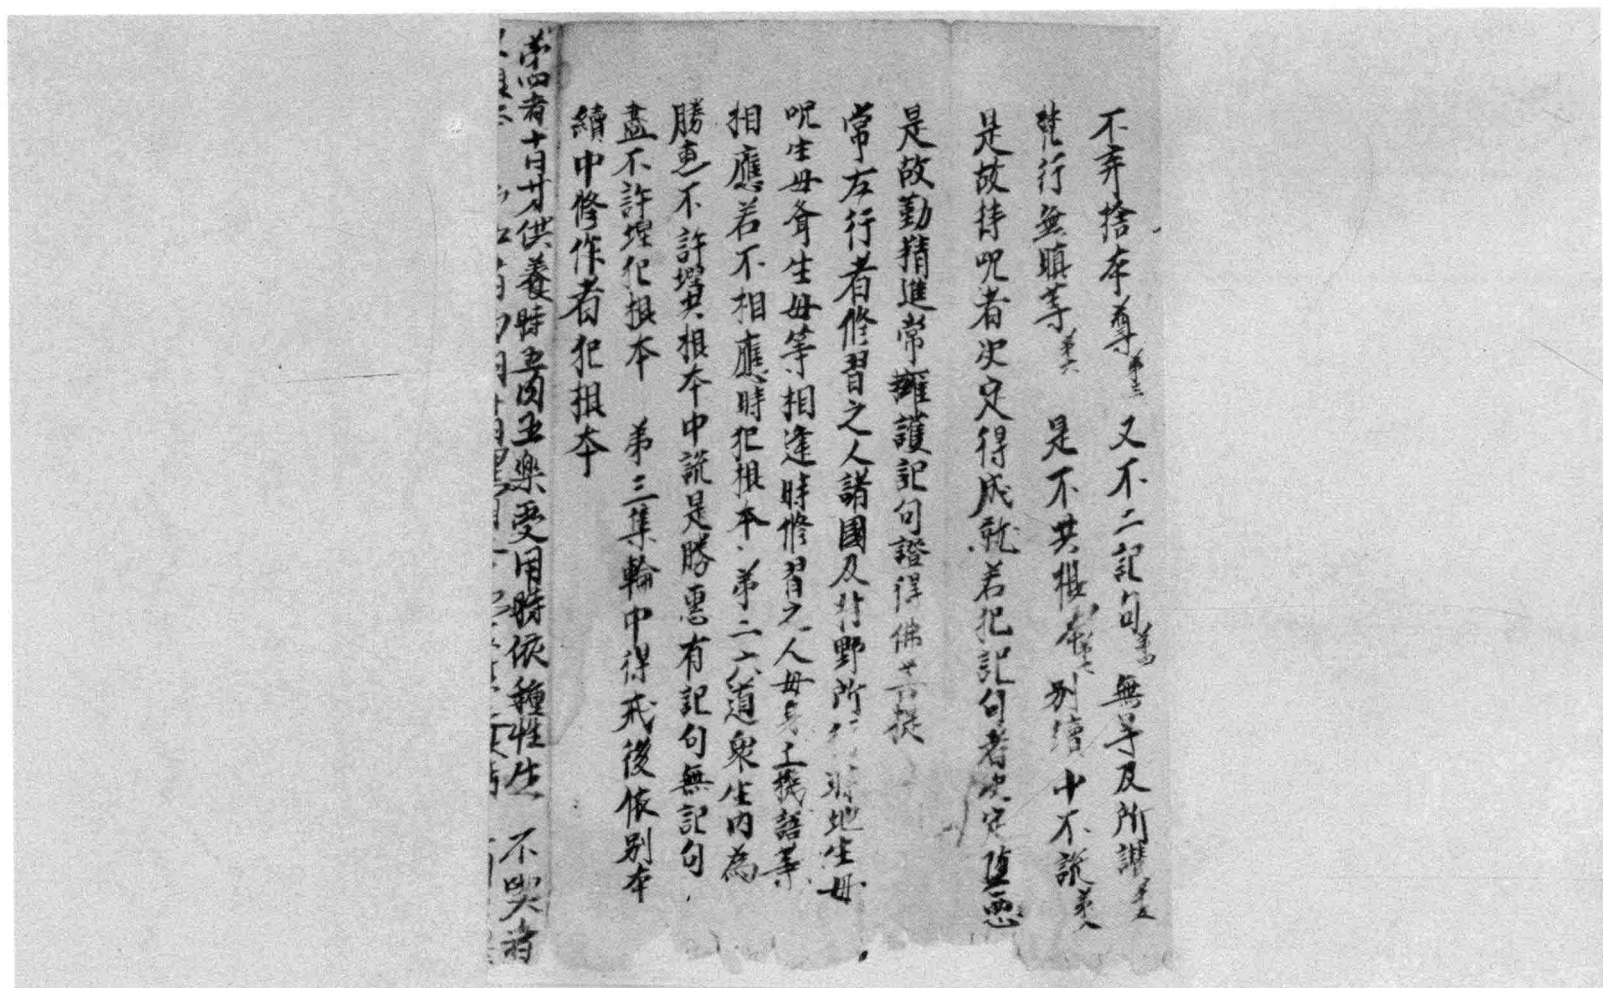 不弃捨本尊第三 又不二記句第四 無等及所諜第五
梵行無瞋等第六 是不共根本第七 別續中不説第八
是故持呪者决定得成就若犯記句者决定墮惡
是故勤精進常擁護記句證得佛菩提
常左行者修習之人諸國及村野所行時地生毋
呪生毋脅生毋等相逢時修習之人毋身土機語等
相應若不相應時犯根本第二六道衆生内為
勝惠不許壞其根本中説是勝惠有記句無記句
盡不許壞犯根本 第三集輪中得戒後依别本
續中修作者犯根本
第四者十日廿五供養時五肉五樂受用時依種性生 不喫者